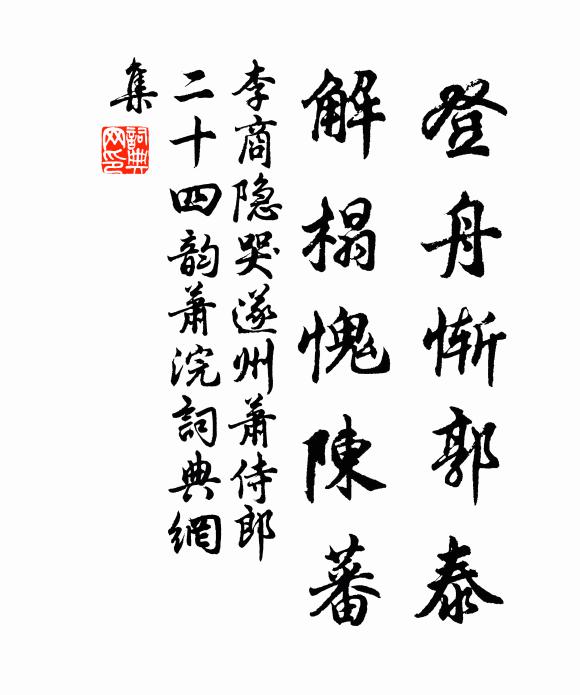 登舟惭郭泰
解榻愧陳蕃
李商隐哭遂州萧侍郎
二十四韵萧浣詞典網
集
詞典
网印